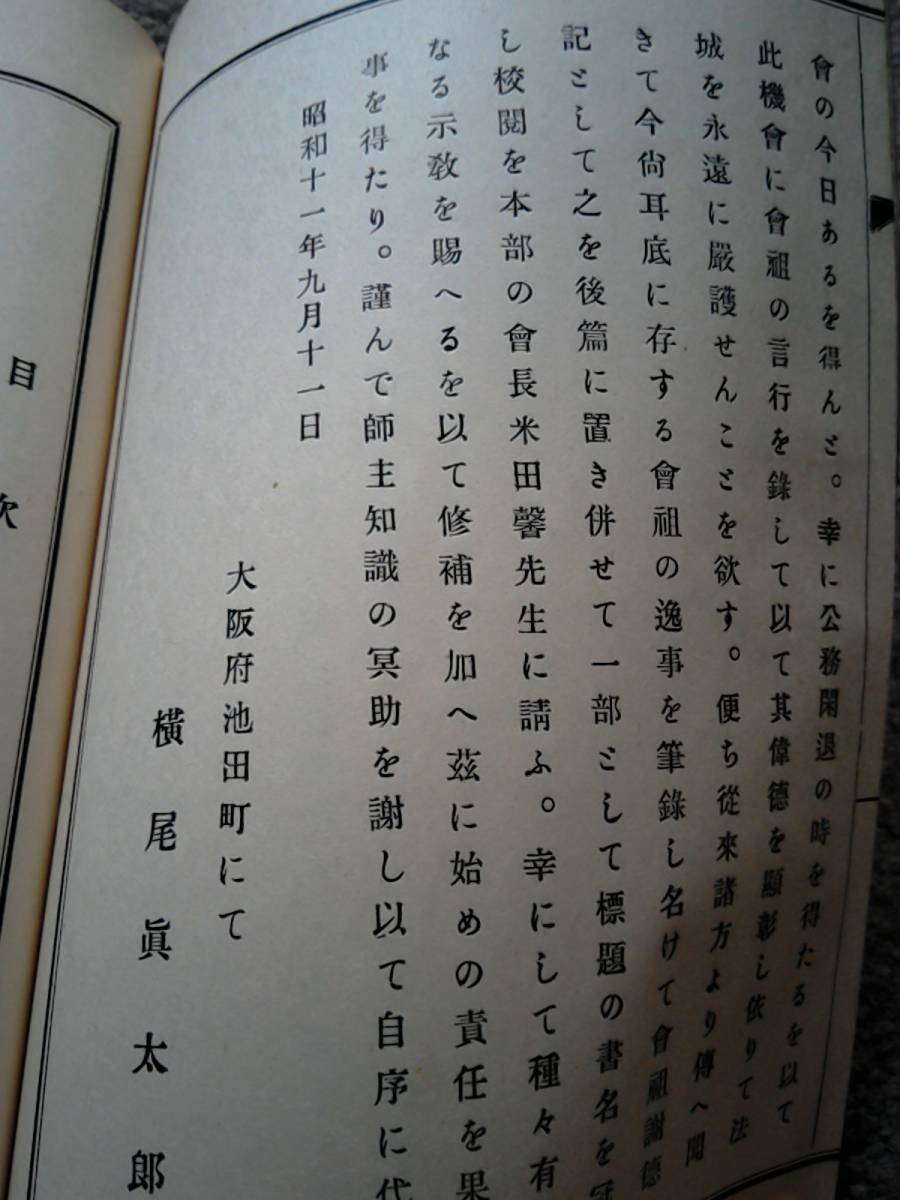 會の今日あるを得んと。幸に公務閑退の時を得たるを以て
此機會に會祖の言行を錄して以て其偉德を顯彰し依りて法
城を永遠に嚴護せんことを欲す。便ち從來諸方より傳へ聞
きて今尙耳底に存する會祖の逸事を筆錄し名けて會祖謝德
記として之を後篇に置き併せて一部として標題の書名を冠
し校閱を本部の會長米田馨先生に請ふ。幸にして種々有
なる示敎を賜へるを以て修補を加へ茲に始めの責任を果
事を得たり。謹んで師主知識の冥助を謝し以て自序に代
昭和十一年九月十一日
大阪府池田町にて
橫尾眞太郎
目次